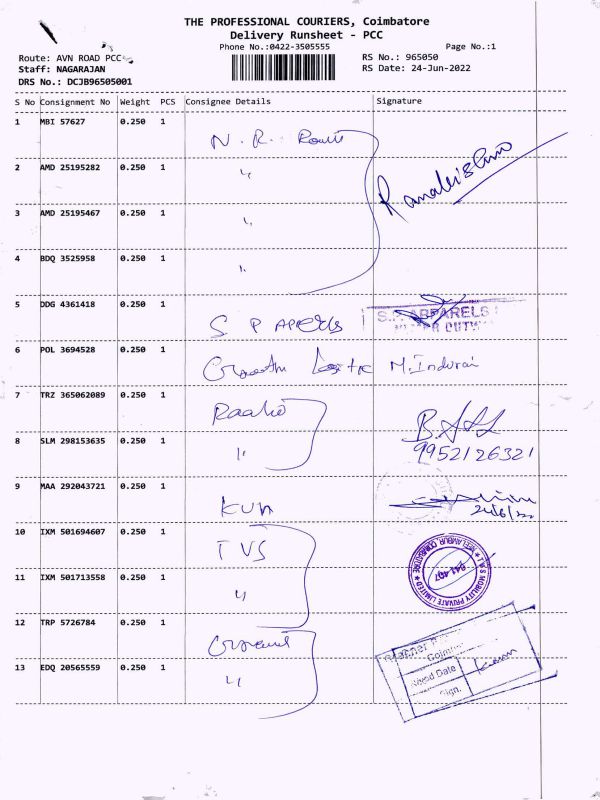 THE PROFESSIONAL COURIERS, Coimbatore
Delivery Runsheet - PCC
Phone No.:0422-3505555
Page No.:1
Route: AVN ROAD PCC
RS No.: 965050
Staff: NAGARAJAN
RS Date: 24-Jun-2022
DRS No.: DCJB96505001
S No Consignment No Weight PCS Consignee Details Signature
1 MBI 57627 0.250 1 N. R.
2 AMD 25195282 0.250 1 "
3 AMD 25195467 0.250 1 "
4 BDQ 3525958 0.250 1 "
5 DDG 4361418 0.250 1 S P S.P. APPARELS
6 POL 3694528 0.250 1 M. Indurai
7 TRZ 365062089 0.250 1
8 SLM 298153635 0.250 1 " 9952126321
9 MAA 292043721 0.250 1 KUN
10 IXM 501694607 0.250 1 TVS
11 IXM 501713558 0.250 1 "
12 TRP 5726784 0.250 1
13 EDQ 20565559 0.250 1 "
MOBILITY PRIVATE LIMITED
641 407
Date
Sign.